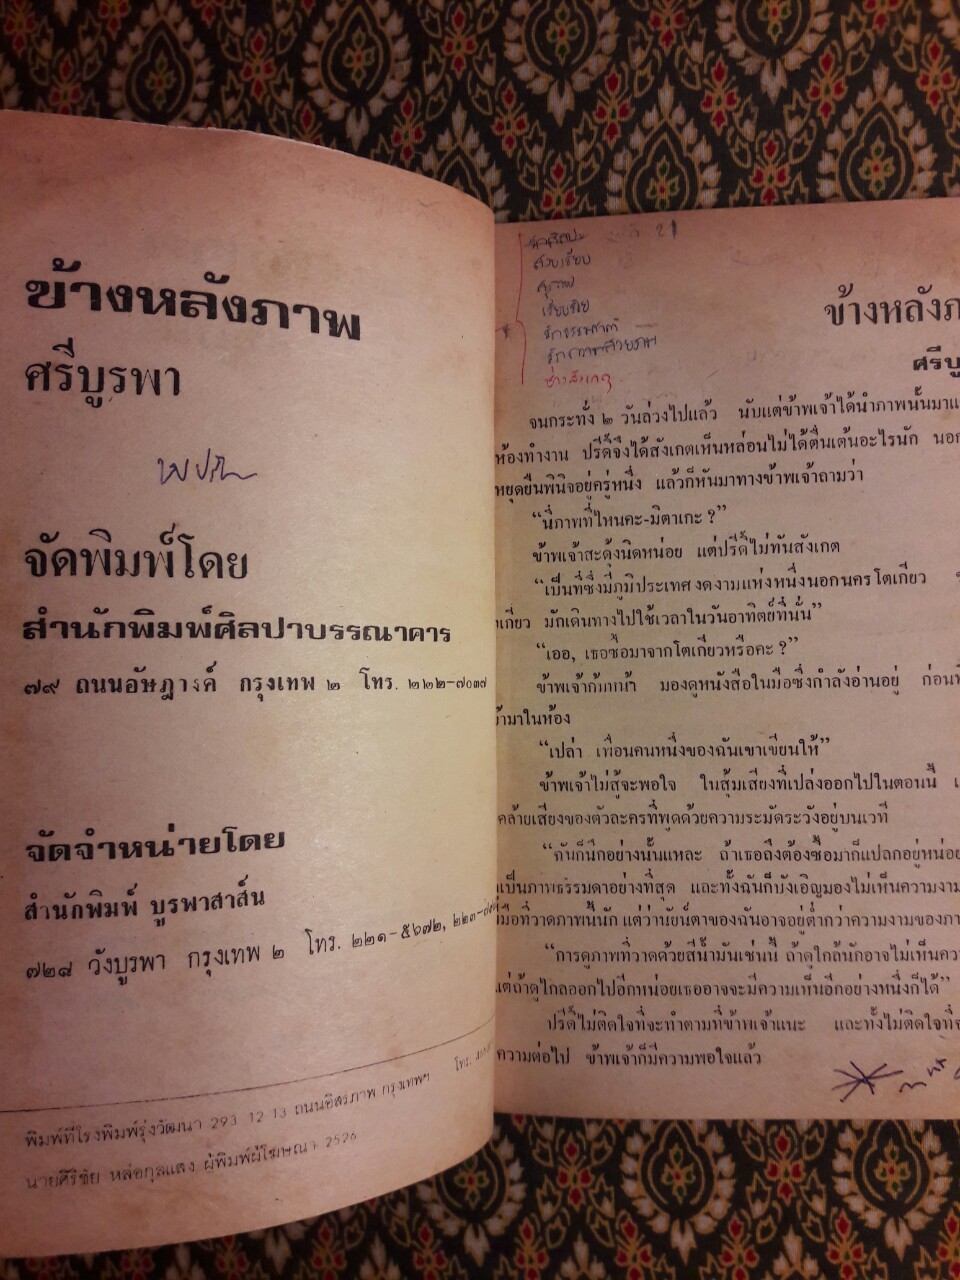 ข้างหลังภาพ
ศรีบูรพา
จัดพิมพ์โดย
สำนักพิมพ์ศิลปาบรรณาคาร
๗๙ ถนนอัษฎางค์ กรุงเทพ ๒ โทร. ๒๒๒-๗๐๓๗
จัดจำหน่ายโดย
สำนักพิมพ์ บูรพาสาส์น
๗๒๘ วังบูรพา กรุงเทพ ๒ โทร. ๒๒๑-๕๖๗๒, ๒๒๓
โทร.
พิมพ์ที่โรงพิมพ์รุ่งวัฒนา 293 12 13 ถนนอิสรภาพ กรุงเทพฯ
นายศิริชัย หล่อกุลแสง ผู้พิมพ์ผู้โฆษณา 2526
21
สุภาพ
ช่างสังเกต
ข้างหลังภ
ศรีบู
จนกระทั่ง ๒ วันล่วงไปแล้ว นับแต่ข้าพเจ้าได้นำภาพนั้นมาแ
ห้องทำงาน ปรีดิ์จึงได้สังเกตเห็นหล่อนไม่ได้ตื่นเต้นอะไรนัก นอก
หยุดยืนพินิจอยู่ครู่หนึ่ง แล้วก็หันมาทางข้าพเจ้าถามว่า
“นี่ภาพที่ไหนคะ-มิตาเกะ ?”
ข้าพเจ้าสะดุ้งนิดหน่อย แต่ปรีดิ์ไม่ทันสังเกต
“เป็นที่ซึ่งมีภูมิประเทศงดงามแห่งหนึ่งนอกนครโตเกียว
กเกียว มักเดินทางไปใช้เวลาในวันอาทิตย์ที่นั่น”
“เออ, เธอซื้อมาจากโตเกียวหรือคะ ?”
ข้าพเจ้าก้มหน้า มองดูหนังสือในมือซึ่งกำลังอ่านอยู่ ก่อนที
ข้ามาในห้อง
“เปล่า เพื่อนคนหนึ่งของฉันเขาเขียนให้”
ข้าพเจ้าไม่สู้จะพอใจ ในสุ้มเสียงที่เปล่งออกไปในตอนนี้ เ
คล้ายเสียงของตัวละครที่พูดด้วยความระมัดระวังอยู่บนเวที
“ฉันก็นึกอย่างนั้นแหละ ถ้าเธอถึงต้องซื้อมาก็แปลกอยู่หน่อย
เป็นภาพธรรมดาอย่างที่สุด และทั้งฉันก็บังเอิญมองไม่เห็นความงาม
มือที่วาดภาพนี้นัก แต่ว่านัยน์ตาของฉันอาจอยู่ต่ำกว่าความงามของภา
“การดูภาพที่วาดด้วยสีน้ำมันเช่นนี้ ถ้าดูใกล้นักอาจไม่เห็นคว
แต่ถ้าดูไกลออกไปอีกหน่อยเธออาจจะมีความเห็นอีกอย่างหนึ่งก็ได้”
ปรีดิ์ไม่ติดใจที่จะทำตามที่ข้าพเจ้าแนะ และทั้งไม่ติดใจที่จ
ความต่อไป ข้าพเจ้าก็มีความพอใจแล้ว